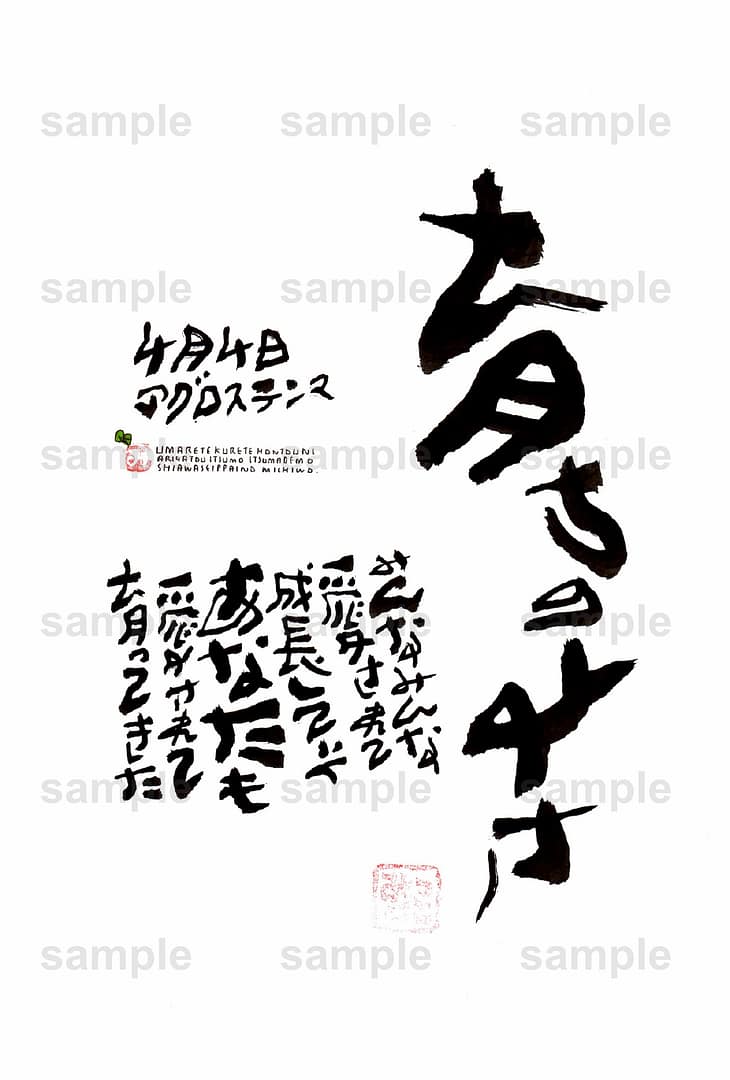 sample sample sample
育ちのよさ
sample sample sample
4月4日
アグロステンマ
sample sample sample
UMARETEKURETEHONTOUNI
ARIGATOUITSUMO ITSUMADEMO
SHIAWASEIPPAINO MICHIWO.
みんなみんな
愛されて
成長していく
あなたも
愛されて
育ってきた
sample sample sample
sample sample sample
sample sample sample